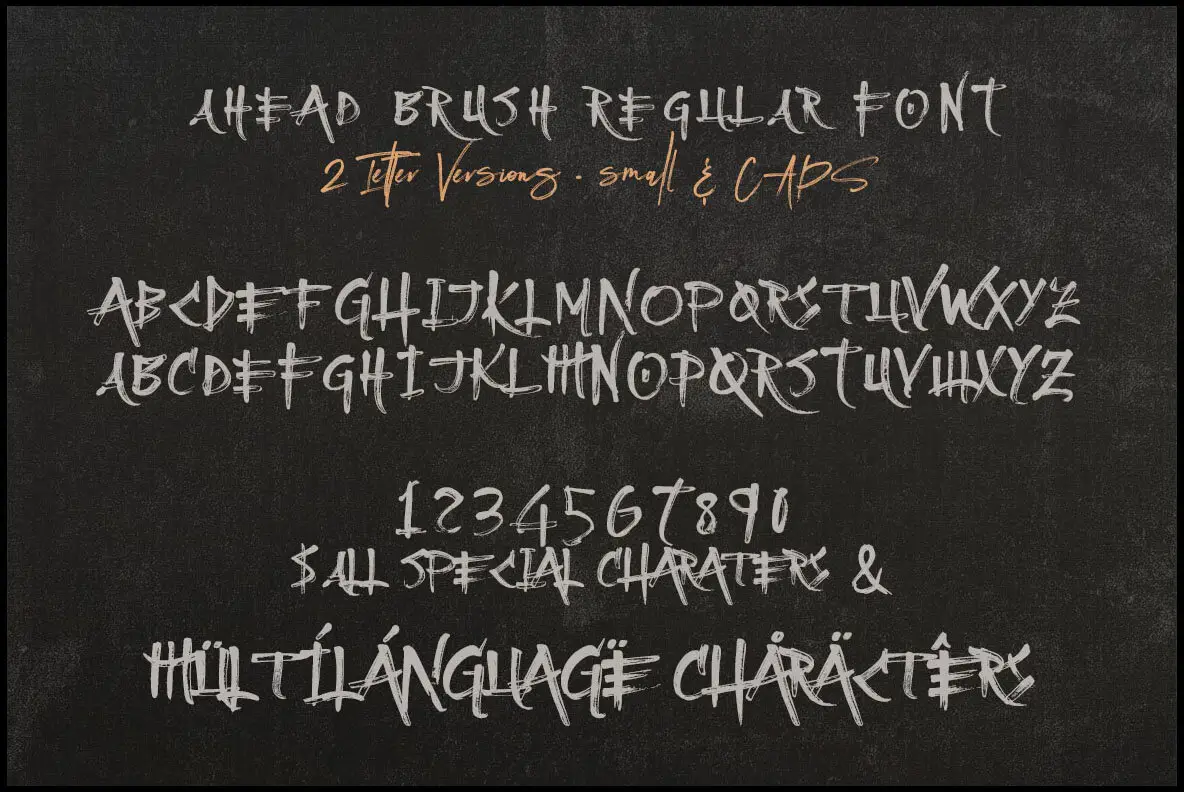 AHEAD BRUSH REGULAR FONT
2 letter Versions . small & CAPS
ABCDEFGHIJKLMNOPQRSTUVWXYZ
ABCDEFGHIJKLMNOPQRSTUVWXYZ
1234567890
$ ALL SPECIAL CHARATERS &
MÜLTÍLÁNGUAGË CHÅRÄCTÊRS